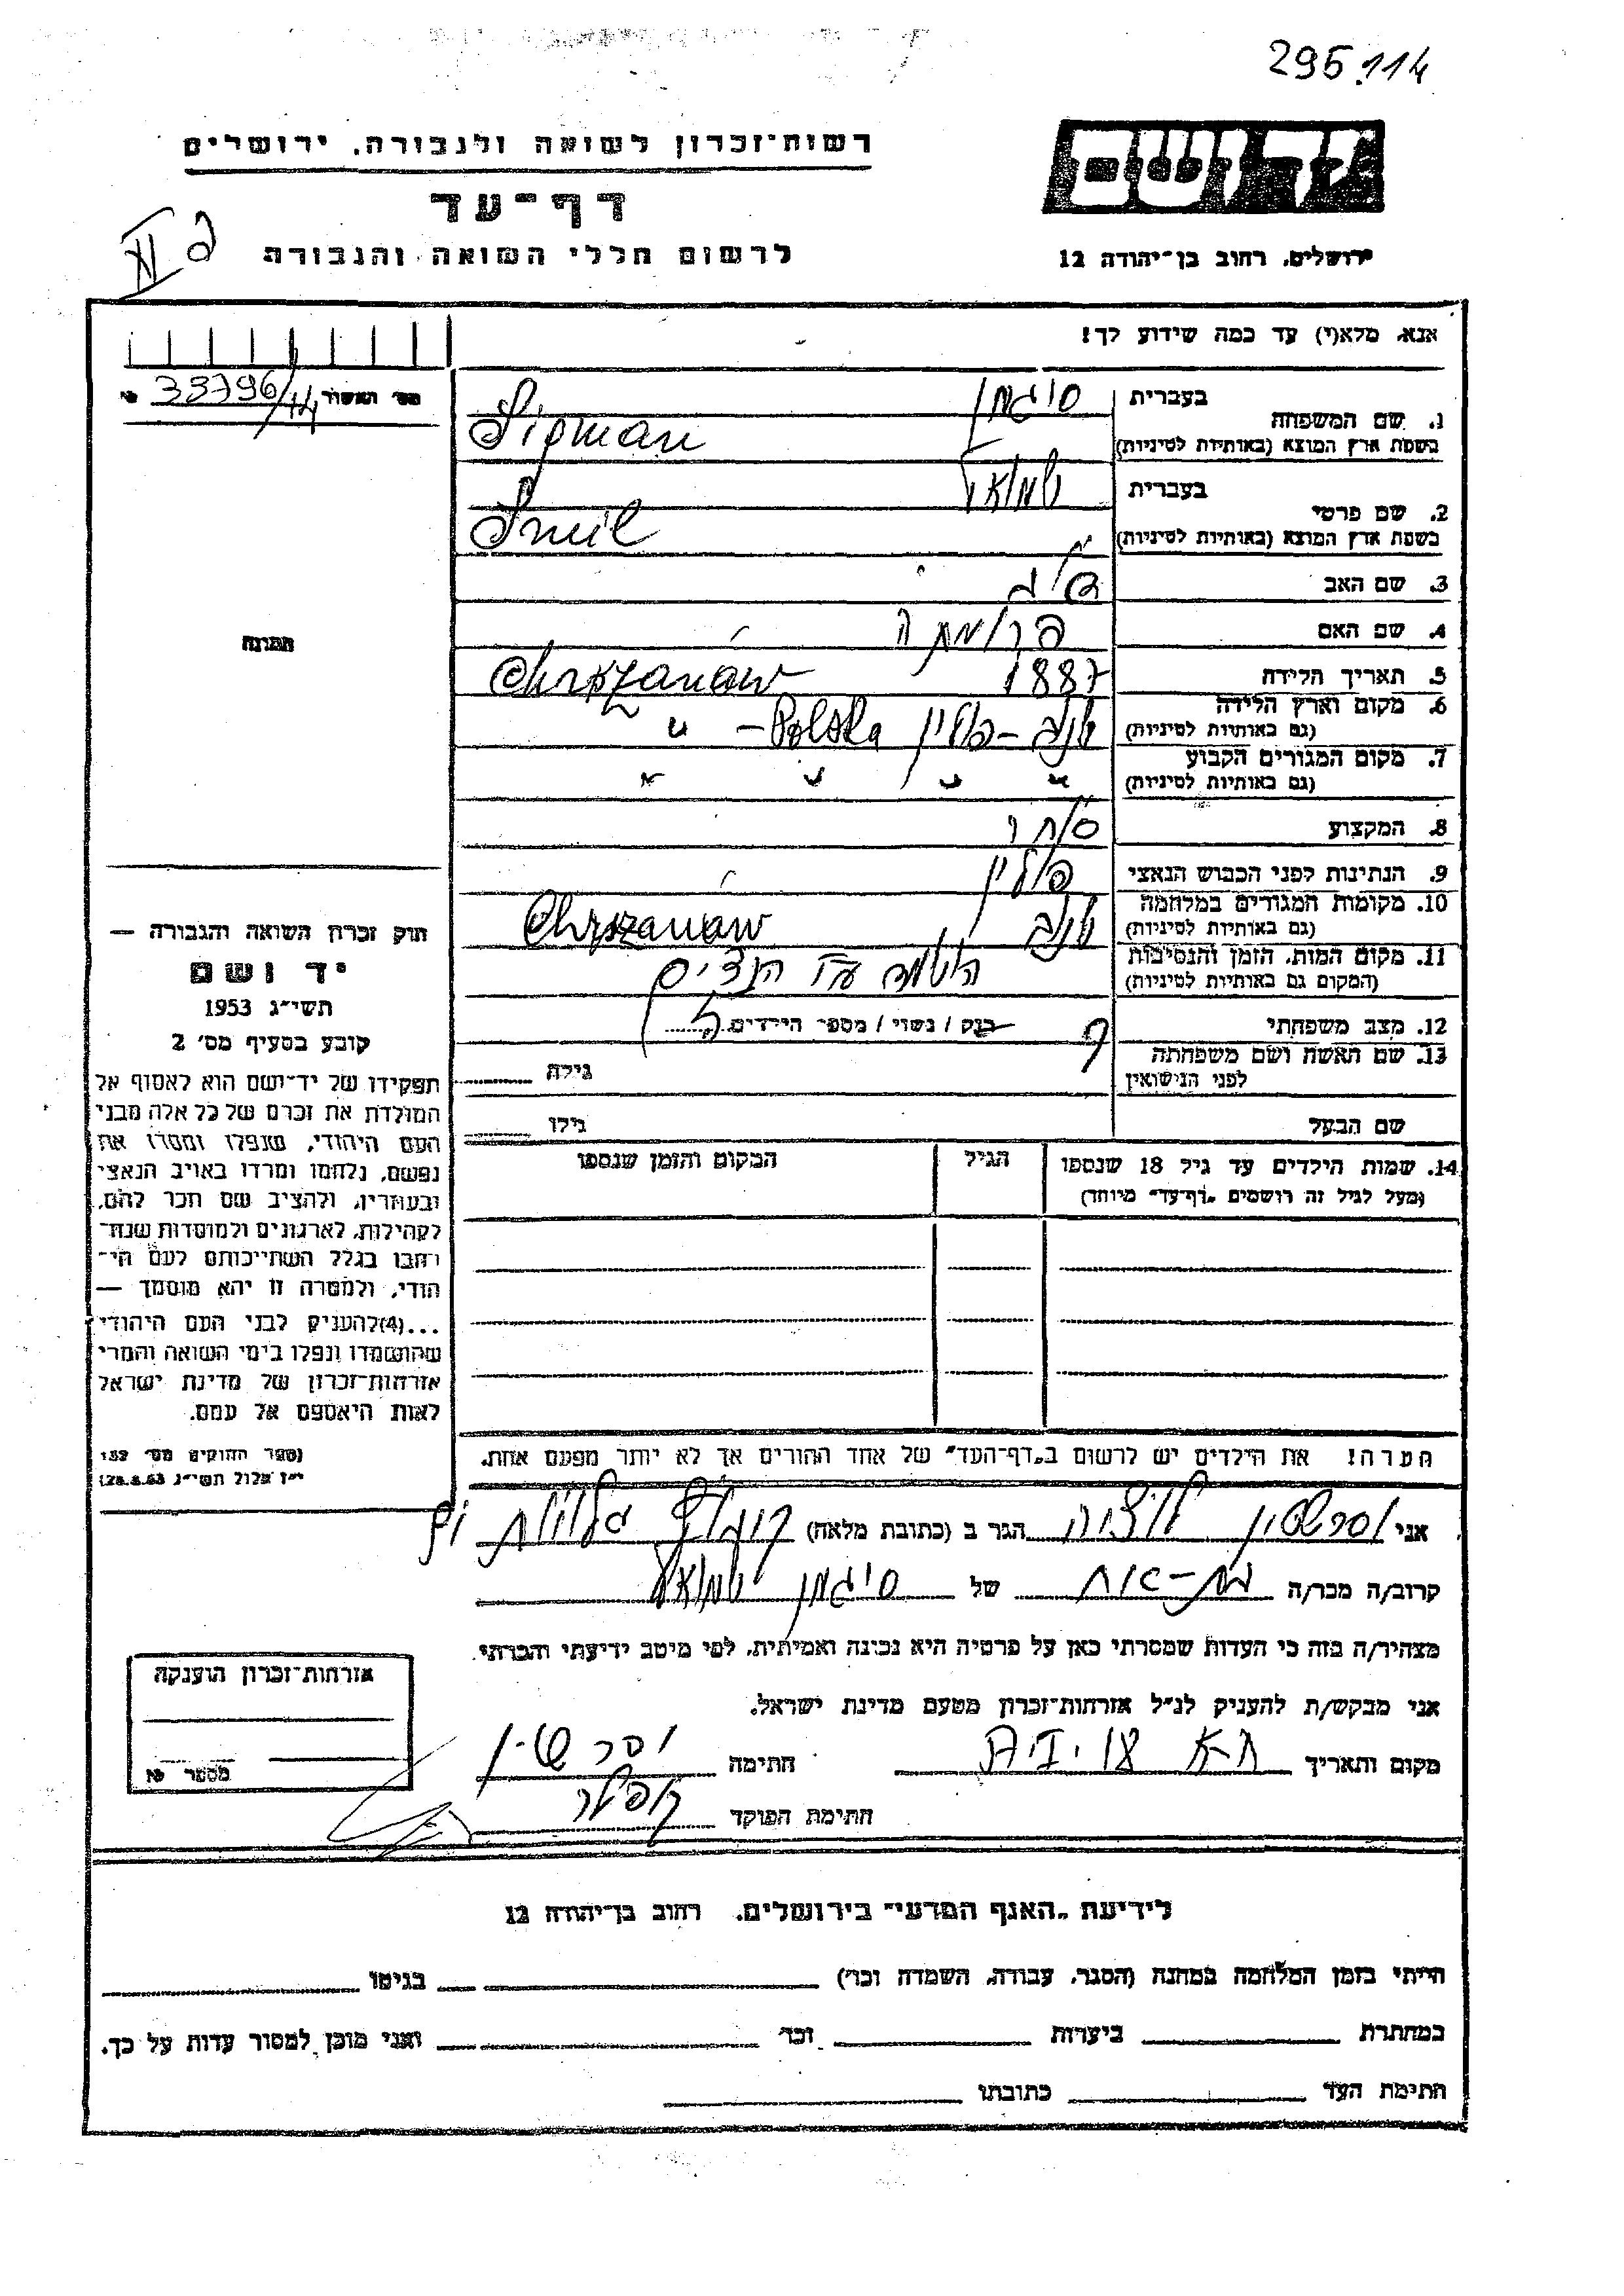 295.114
רשות־זכרון לשואה ולגבורה, ירושלים
יד ושם
דף־עד
לרשום חללי השואה והגבורה
ירושלים, רחוב בן־יהודה 12
אנא, מלא(י) עד כמה שידוע לך!
מס׳ האשור 33796/44
1. שם המשפחה
בעברית סיגמן
בשפת ארץ המוצא (באותיות לטיניות) Sigman
2. שם פרטי
בעברית שמואל
בשפת ארץ המוצא (באותיות לטיניות) Smil
3. שם האב
4. שם האם
5. תאריך הלידה 1887
6. מקום וארץ הלידה
(גם באותיות לטיניות) Polska
7. מקום המגורים הקבוע
(גם באותיות לטיניות)
8. המקצוע סוחר
9. הנתינות לפני הכבוש הנאצי פולין
10. מקומות המגורים במלחמה
(גם באותיות לטיניות)
11. מקום המות, הזמן והנסיבות
(המקום גם באותיות לטיניות) הושמד ע״י הנצים
12. מצב משפחתי רווק / נשוי / מספר הילדים
13. שם האשה ושם משפחתה
לפני הנישואין גילה
שם הבעל גילו
14. שמות הילדים עד גיל 18 שנספו
(מעל לגיל זה רושמים „דף־עד” מיוחד)
הגיל
המקום והזמן שנספו
הערה! את הילדים יש לרשום ב„דף־העד” של אחד ההורים אך לא יותר מפעם אחת.
תמונה
חוק זכרון השואה והגבורה —
יד ושם
תשי״ג 1953
קובע בסעיף מס׳ 2
תפקידו של יד־ושם הוא לאסוף אל
המולדת את זכרם של כל אלה מבני
העם היהודי, שנפלו ומסרו את
נפשם, נלחמו ומרדו באויב הנאצי
ובעוזריו, ולהציב שם וזכר להם,
לקהילות, לארגונים ולמוסדות שנח־
רבו בגלל השתייכותם לעם הי־
הודי, ולמטרה זו יהא מוסמך —
...(4)להעניק לבני העם היהודי
שהושמדו ונפלו בימי השואה והמרי
אזרחות־זכרון של מדינת ישראל
לאות היאספם אל עמם.
(ספר החוקים מס׳ 132
י״ז אלול תשי״ג 28.8.53)
אני הגר ב (כתובת מלאה)
קרוב/ה מכר/ה בת-דוד של סיגמן שמואל
מצהיר/ה בזה כי העדות שמסרתי כאן על פרטיה היא נכונה ואמיתית, לפי מיטב ידיעתי והכרתי.
אני מבקש/ת להעניק לנ״ל אזרחות־זכרון מטעם מדינת ישראל.
מקום ותאריך חתימה
חתימת הפוקד
אזרחות־זכרון הוענקה
מספר
לידיעת „האגף המדעי” בירושלים, רחוב בן־יהודה 12
הייתי בזמן המלחמה במחנה (הסגר, עבודה, השמדה וכו׳) בגיטו
במחתרת ביערות וכו׳ ואני מוכן למסור עדות על כך.
חתימת העד כתובתו